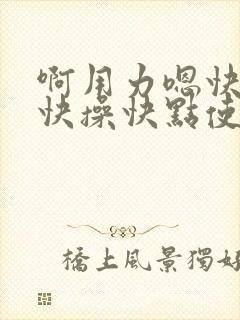 啊用力嗯快
快操快點使
橋上風景獨好